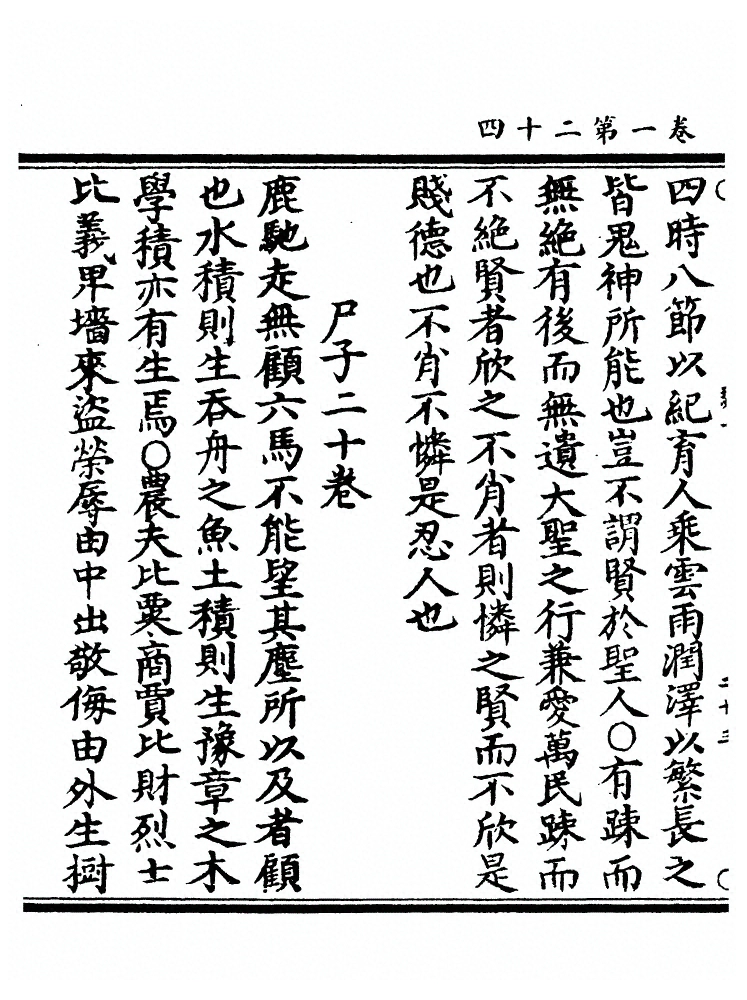 卷一第二十四
四時八節以紀育人乘雲雨潤澤以繁長之
皆鬼神所能也豈不謂賢於聖人〇有踈而
無絶有後而無遺大聖之行兼愛萬民踈而
不絶賢者欣之不肖者則憐之賢而不欣是
賤德也不肖不憐是忍人也
尸子二十卷
鹿馳走無顧六馬不能望其塵所以及者顧
也水積則生吞舟之魚土積則生豫章之木
學積亦有生焉〇農夫比粟商賈比財烈士
比義卑墻來盜榮辱由中出敬侮由外生樹